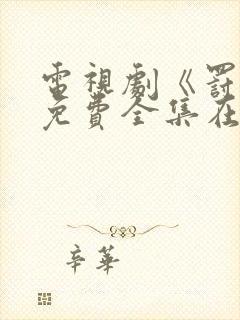 電視劇《罰
免費全集在
辛華